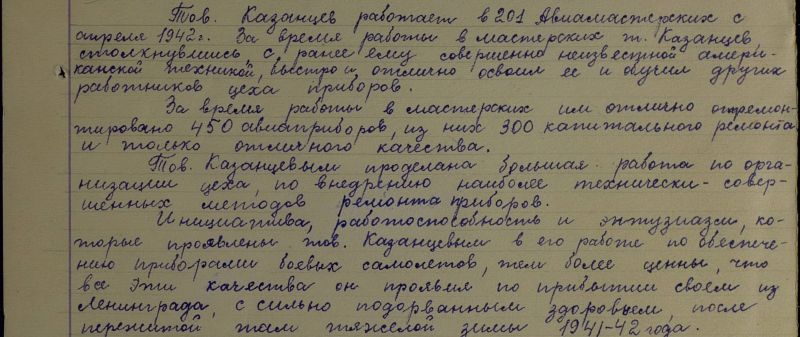 Тов. Казанцев работает в 201 Авиамастерских с
апреля 1942 г. За время работы в мастерских т. Казанцев
столкнувшись с ранее ему совершенно неизвестной амери-
канской техникой, быстро и отлично освоил ее и обучил других
работников цеха приборов.
За время работы в мастерских им отлично отремон-
тировано 450 авиаприборов, из них 300 капитального ремонта
и только отличного качества.
Тов. Казанцевым проделана большая работа по орга-
низации цеха, по внедрению наиболее технически-совер-
шенных методов ремонта приборов.
Инициатива, работоспособность и энтузиазм, ко-
торые проявлены тов. Казанцевым в его работе по обеспече-
нию приборами боевых самолетов, тем более ценны, что
все эти качества он проявил по прибытии своем из
Ленинграда, с сильно подорванным здоровьем, после
пережитой там тяжелой зимы 1941-42 года.